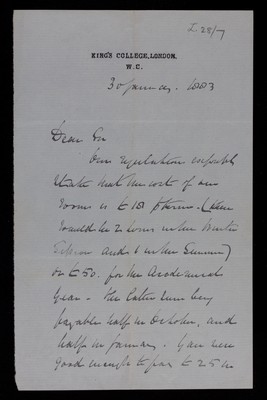 L 28/7
KING'S COLLEGE, LONDON.
W.C.
30 January. 1883
Dear Sir
Our regulations
State that the cost of our
rooms is £18 a term. (There
would be 2 terms in the Winter
and 1 in the Summer)
or £50. for the Academical
Year - the latter sum being
payable half in October, and
half in January. You were
good enough to pay £25 in